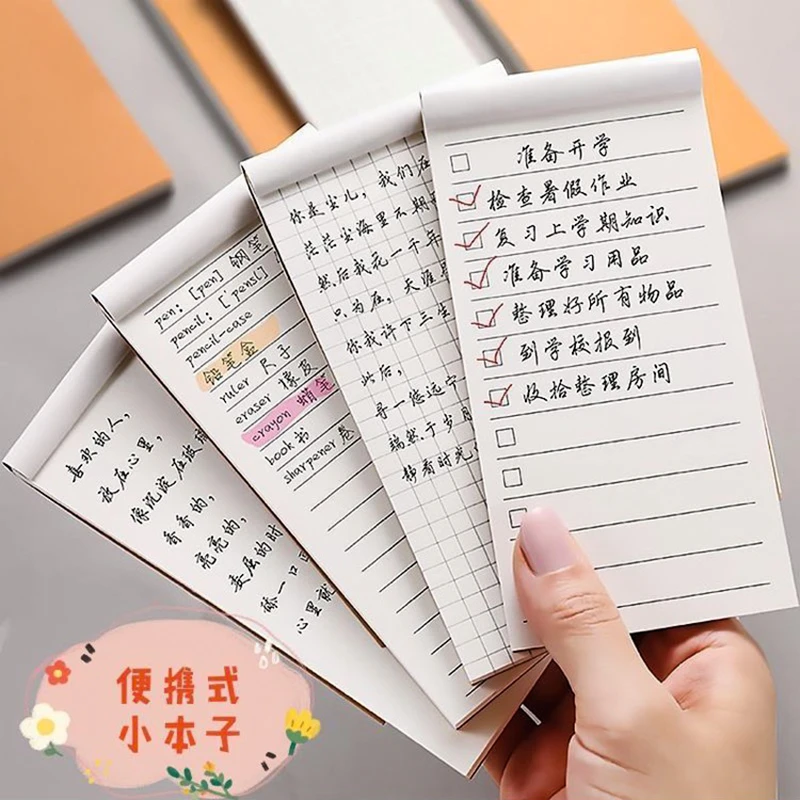 准备开学
检查暑假作业
复习上学期知识
准备学习用品
整理好所有物品
到学校报到
收拾整理房间
你是尘儿，我们在
茫茫尘海里不期
然后我花一千年
只为在，天涯
你我许下三生
此后，
寻一处远宁
端然于岁月
静看时光
pen: [pen] 钢笔
pencil: [pensl]
pencil-case
铅笔盒
ruler 尺子
eraser 橡皮
crayon 蜡笔
book 书
sharpener 卷
喜欢的人，
放在心里，
像沉淀在玻璃
香香的，
亮亮的，
委屈的时
舔一口
心里就
便携式
小本子